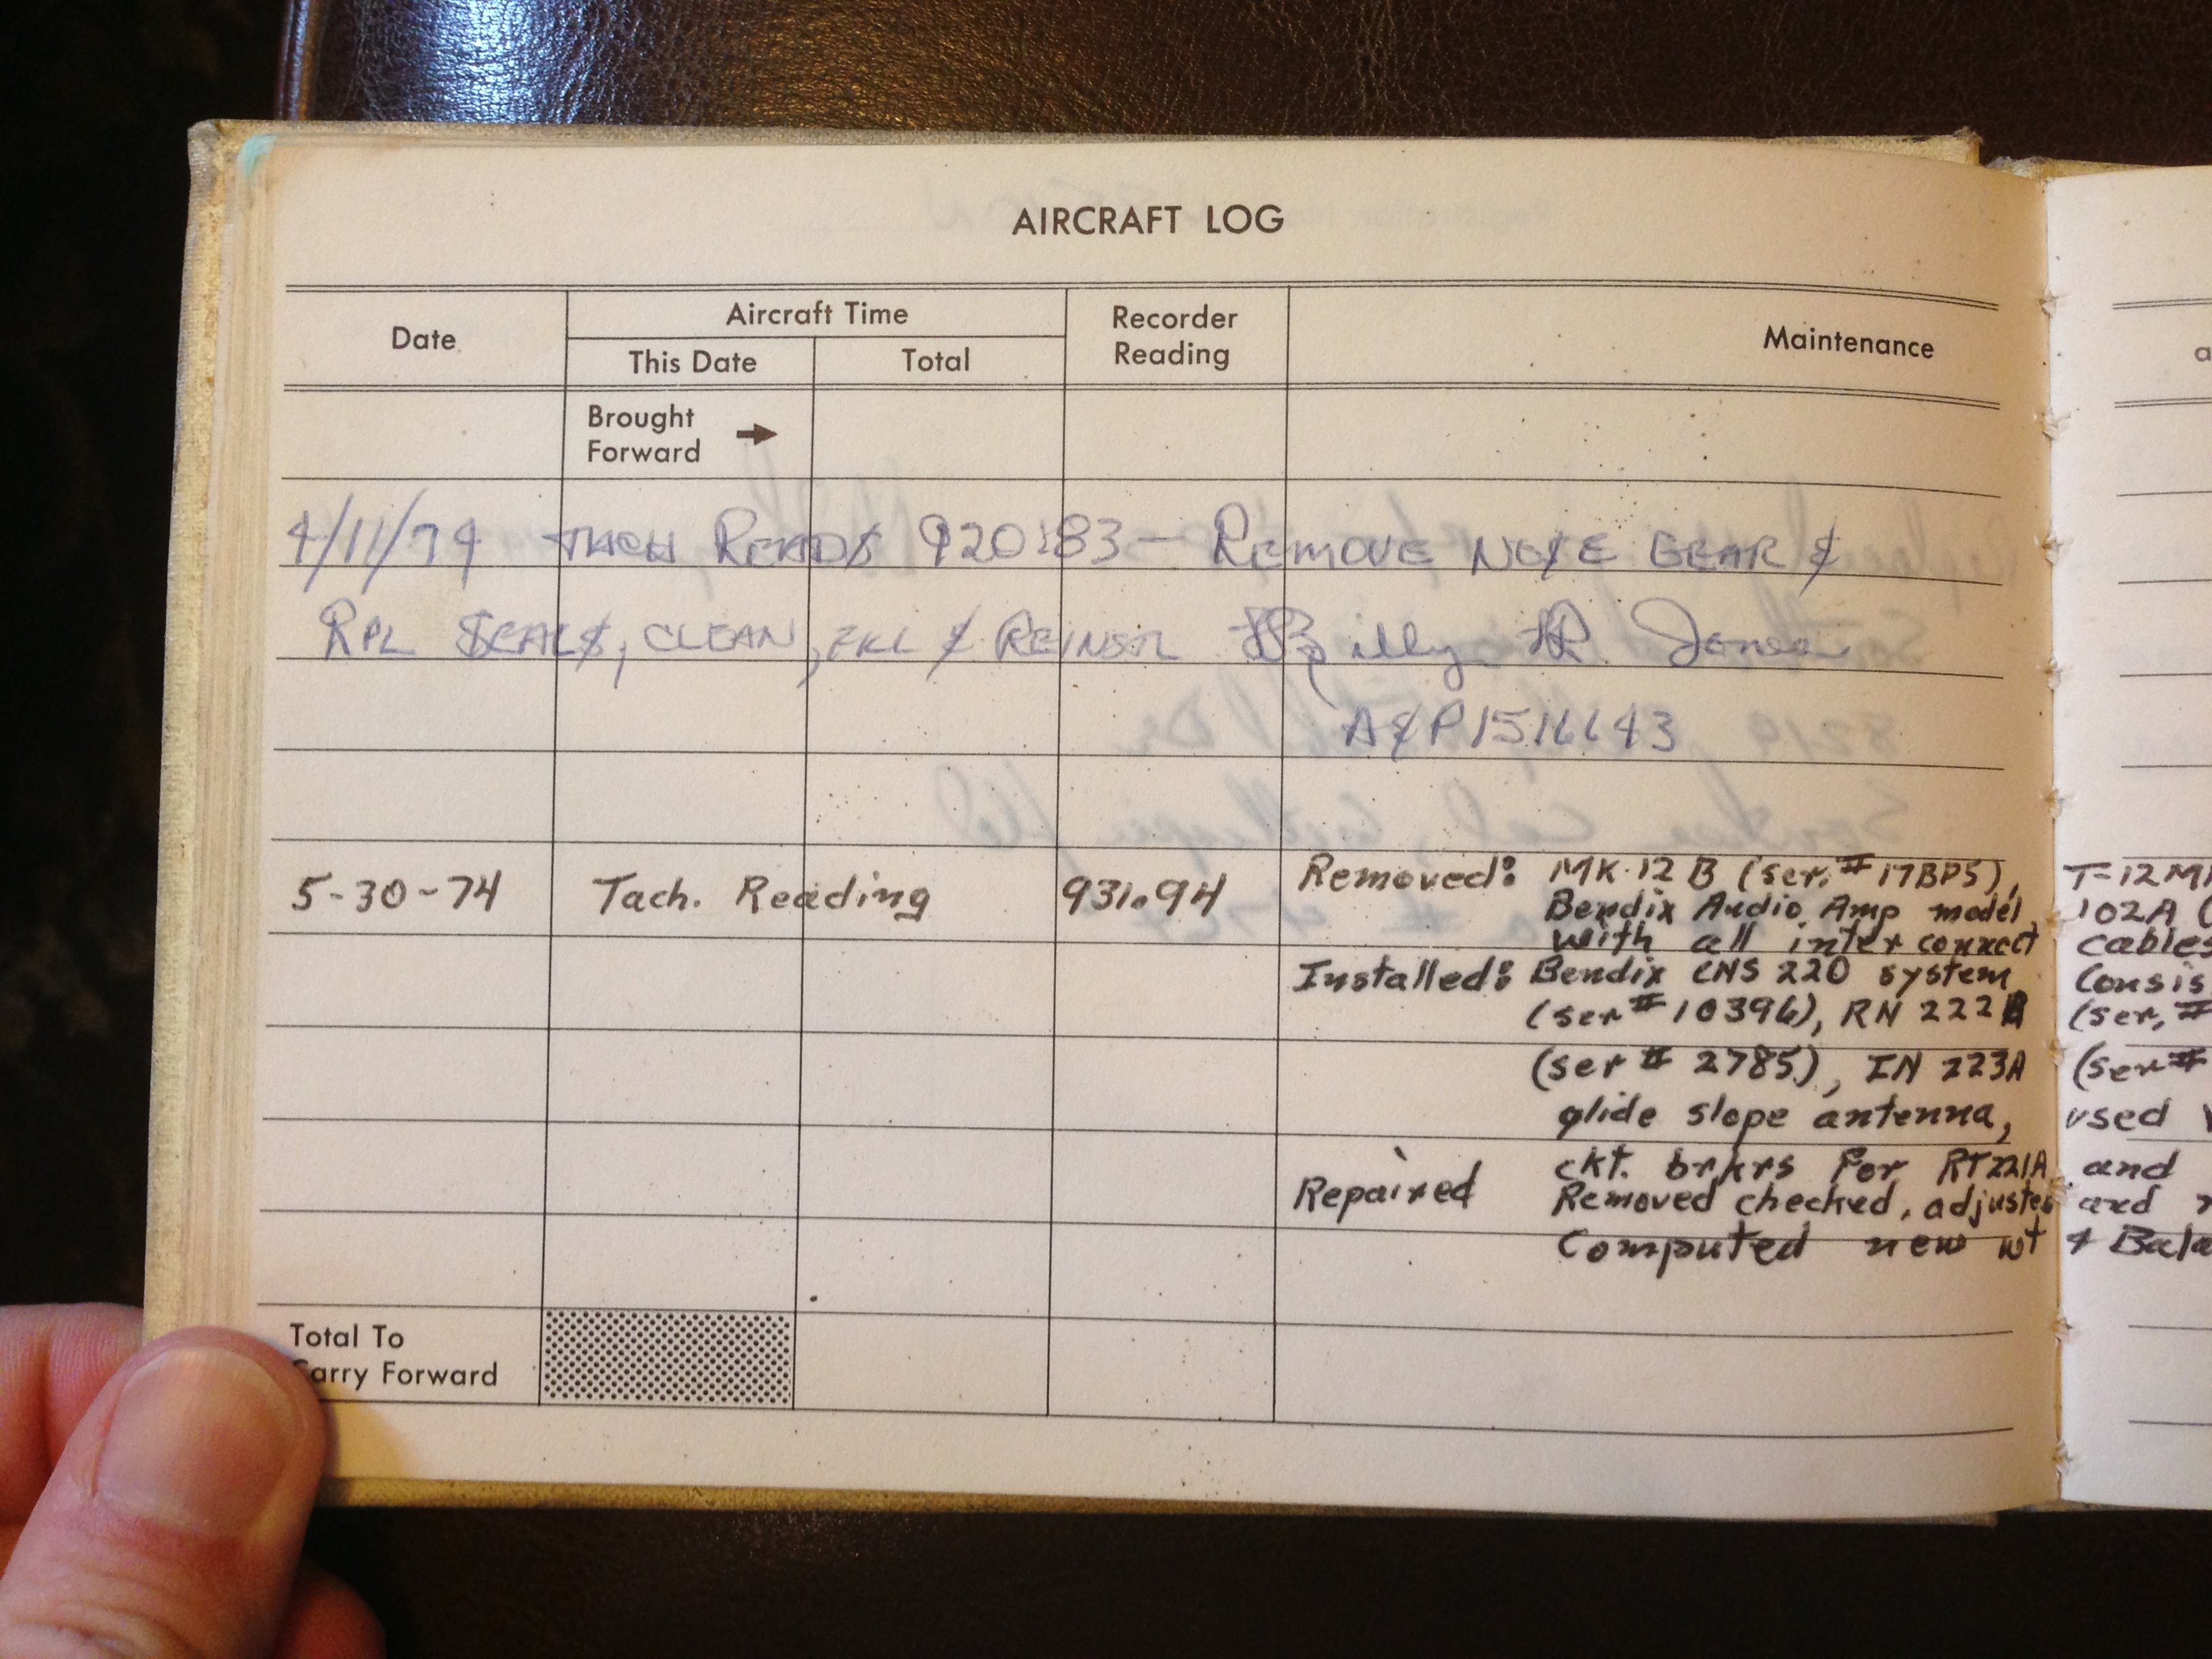 AIRCRAFT LOG
Date
Aircraft Time
This Date
Total
Recorder
Reading
Maintenance
Brought
Forward
4/11/74 TACH READS 920.83 - REMOVE NOSE GEAR &
RPL SEALS, CLEAN, & REINSTL Billy R. Jones
A&P
5-30-74 Tach. Reading 931.94 Removed: MK-12 B (ser. # 17BP5), T-12
Bendix Audio Amp model 102A (
with all inter connect cables
Installed: Bendix CNS 220 system Consis
(ser # 10396), RN 222 (ser, #
(ser # 2785), IN 223A (ser #
glide slope antenna, used
ckt. brkrs For RT221A and
Repaired Removed checked, adjusted and
Computed new wt & Bala
Total To
Carry Forward